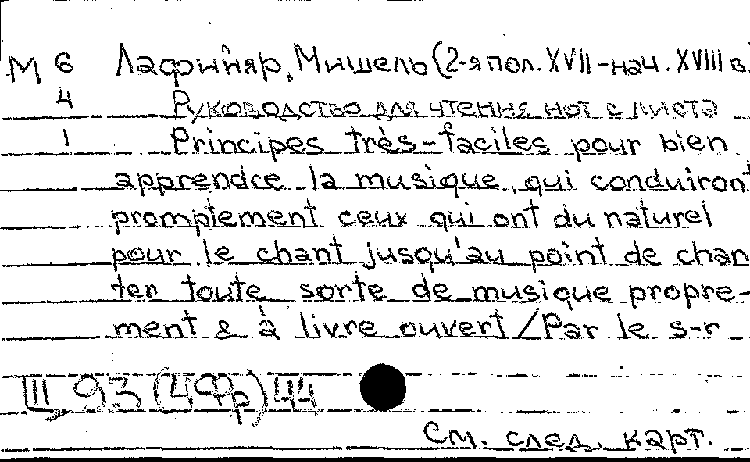 М 6 Лафийяр, Мишель (2-я пол. XVII - нач. XVIII в.
4 Руководство для чтения нот с листа
1 Principes très-faciles pour bien
apprendre la musique, qui conduiront
promptement ceux qui ont du naturel
pour le chant jusqu'au point de chan
ter toute sorte de musique propre-
ment & à livre ouvert / Par le s-r
III 93 (4Фр) 44
См. след. карт.